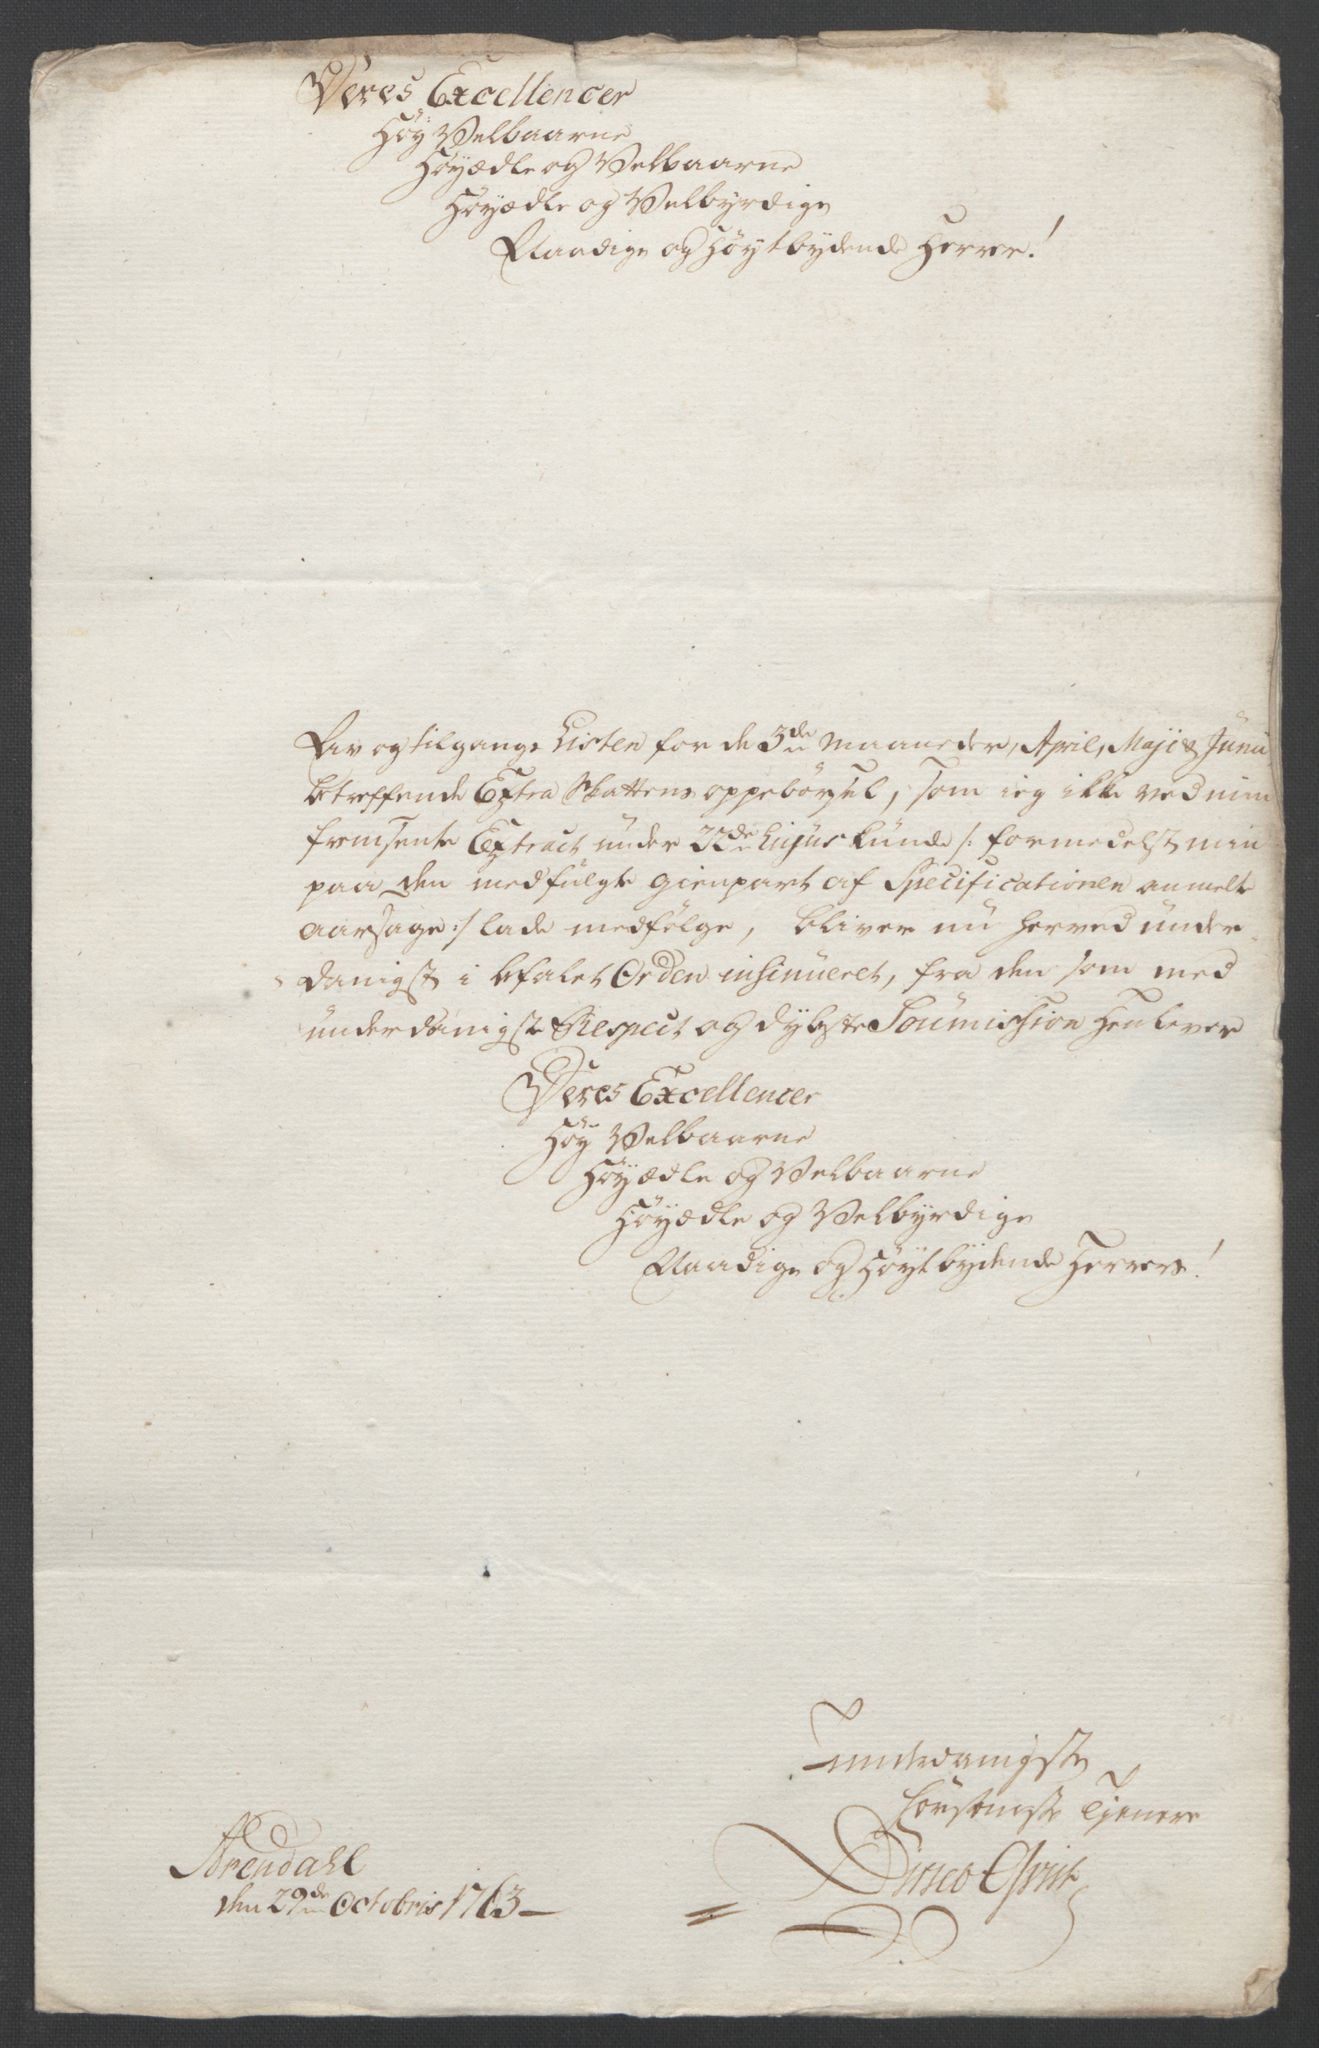 Deres Excellencer
Høy Velbaarne
Høyædle og Velbaarne
Høyædle og Velbyrdige
Naadige og Høytbydende Herrer!
Av og tilgangs Listen for de 3de Maaneder, April, Maji & Junii
betreffende Extra Skattens oppebørsel, som ieg ikke ved min
fremsente Extract under 22de hujus kunde /: formedelst min
paa den medfulgte Gienpart af Specificationen anmelte
aarsage :/ lade medfølge, bliver nu herved under-
danigst i befalet Orden insinueret, fra den som med
underdanigste Respect og dybeste Soumission henlever
Deres Excellencer
Høy Velbaarne
Høyædle og Velbaarne
Høyædle og Velbyrdige
Naadige og Høytbydende Herrers!
underdanigste
Tjenere
Arendahl
den 29de Octobris 1763